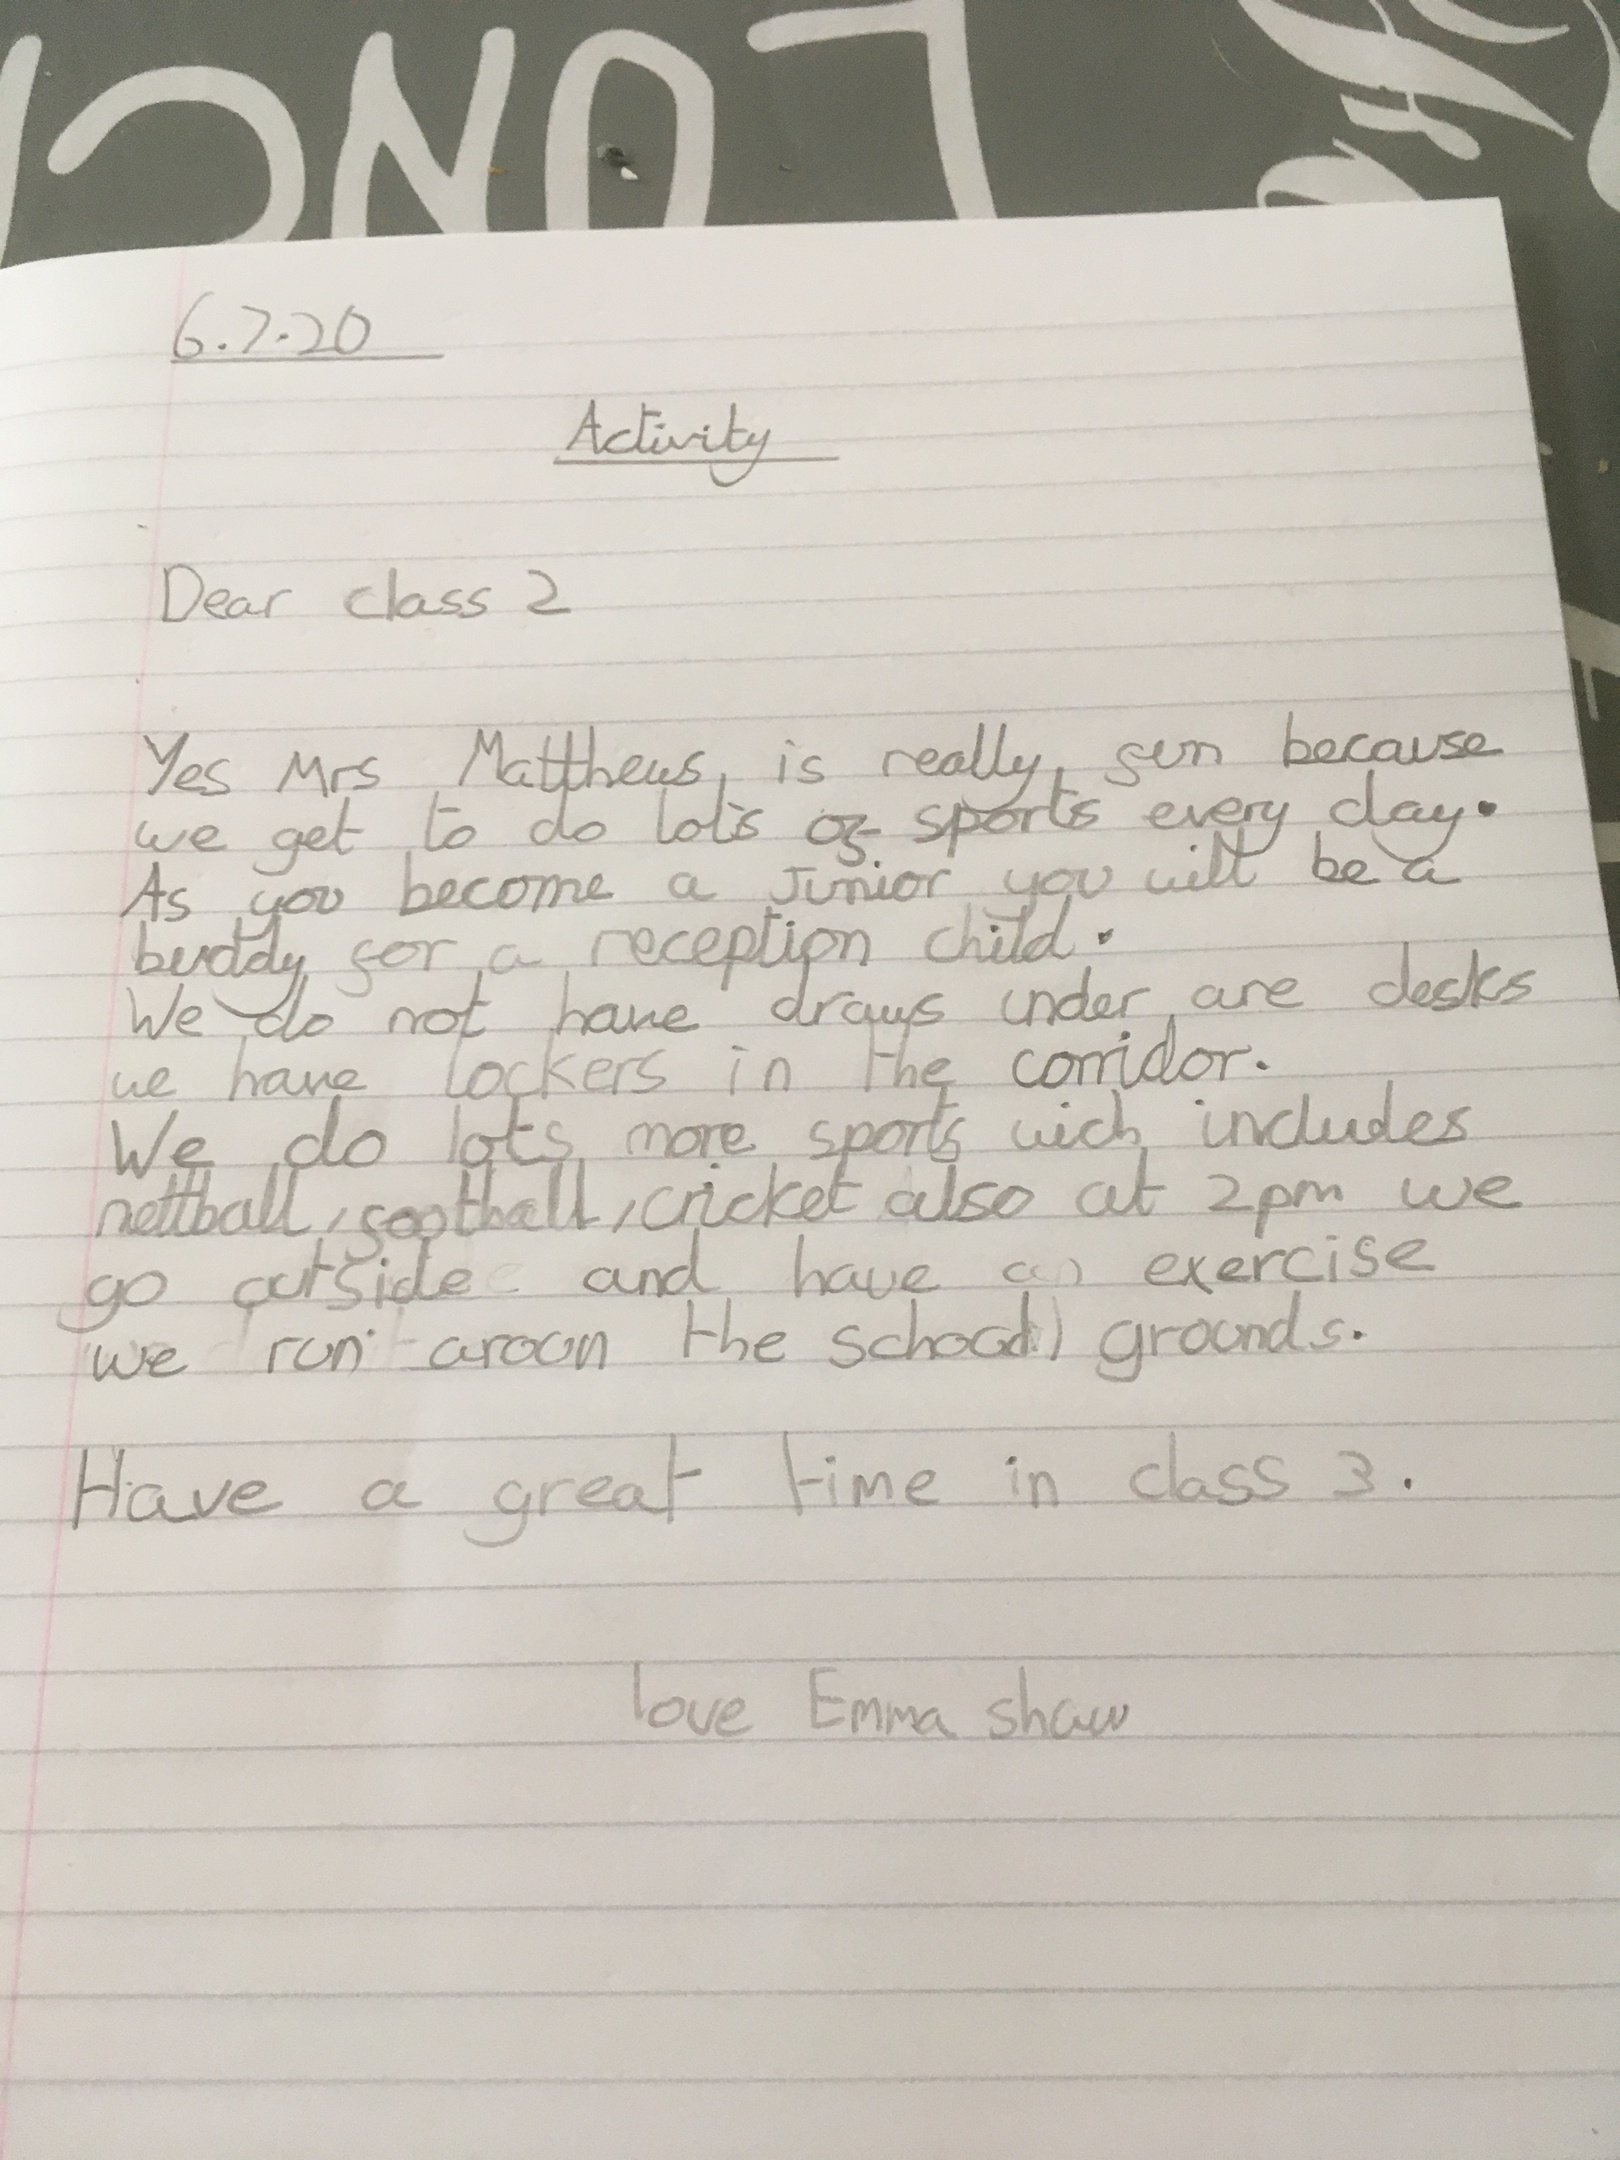 6.7.20
Activity
Dear class 2
Yes Mrs Matthews, is really, fun because
we get to do lots of sports every day.
As you become a Junior you will be a
buddy for a reception child.
We do not have draws under are desks
we have lockers in the corridor.
We do lots more sports wich includes
nettball, football, cricket also at 2pm we
go outside and have an exercise
we run aroun the school grounds.
Have a great time in class 3.
love Emma shaw